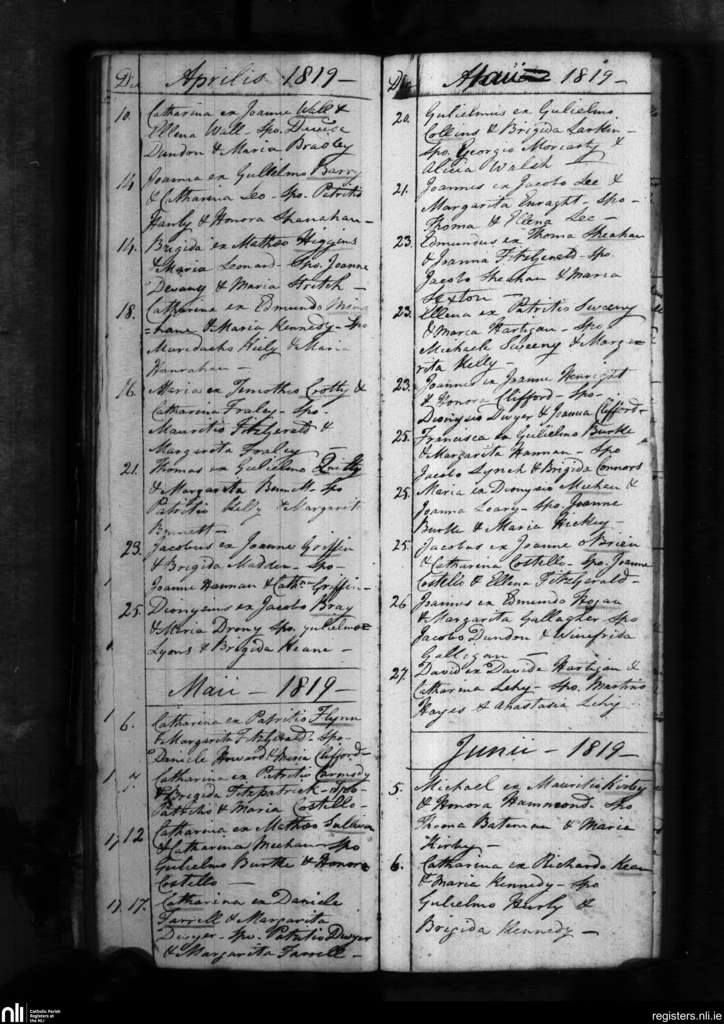 Di Aprilis 1819 -
10. Catharina ex Joanne Wall &
Ellena Wall - Spo.
Dundon & Maria Bradley
14 Joanna ex Gulielmo Barry
& Catharina Leo - Spo. Patritio
Hanly & Honora Shanahan -
14. Brigida ex Matheo Higgins
& Maria Leonard - Spo. Joanne
Devany & Maria Stretch -
18. Catharina ex Edmundo
=hane & Maria Kennedy - Spo
Muredacho Kiely & Maria
Hanrahan -
16. Maria ex Temotheo Crotty &
Catharina Fraley - Spo.
Mauritio FitzGerald &
Margarita Fraley -
21. Thomas ex Gulielmo
& Margarita Bennett - Spo
Patritio Kely & Margarit
Bennett -
23. Jacobus ex Joanne Griffin
& Brigida Madden - Spo -
Joanne Hannan & Cathne Griffin -
25. Dionysius ex Jacobo Bray
& Maria Drony Spo. Gulielmo
Lyons & Brigida Heane -
Maii - 1819 -
1 6. Catharina ex Patritio Flynn
& Margarita FitzGerald - Spo -
Daniele Howard & Maria Clifford
1 7. Catharina ex Patritio Carmody
& Brigida Fitzpatrick - Spo -
Patritio & Maria Costello -
12 Catharina ex Matheo Sullivan
& Catharina Meehan - Spo
Gulielmo Burke & Honora
Costello -
17. Catharina ex Daniele
Farrell & Margarita
Dwyer - Spo. Patritio Dwyer
& Margarita Farrell -
Di Maii 1819 -
20. Gulielmus ex Gulielmo
Collins & Brigida Larkin -
Spo. Georgio Moriarty &
Alicia Walsh -
21. Joannes ex Jacobo Lee &
Margarita Enraght - Spo -
Thoma & Ellena Lee -
23. Edmundus ex Thoma Sheehan
& Joanna FitzGerald - Spo.
Jacobo Sheehan & Maria
Sexton -
23. Ellena ex Patritio Sweeny
& Maria Hartigan - Spo
Michaele Sweeny & Marga
rita Kelly -
23. Joannes ex Joanne Henright
& Honora Clifford - Spo -
Dionysio Dwyer & Joanna Clifford
25. Francisca ex Gulielmo Burke
& Margarita Hannan - Spo
Jacobo Lynch & Brigida Connors
25. Maria ex Dionysio Meehan &
Joanna Leary - Spo. Joanne
Burke & Maria Hickey -
25. Jacobus ex Joanne OBrien
& Catharina Costello - Spo. Joanne
Costello & Ellena FitzGerald -
26 Joannes ex Edmundo Hogan
& Margarita Gallagher Spo
Jacobo Dundon & Winefrida
Galligan -
27. David ex Davide Hartigan &
Catharina Lehy - Spo. Martino
Hayes & Anastasia Lehy
Junii - 1819 -
5. Michael ex Mauritio Kirby
& Honora Hammond - Spo
Thoma Bateman & Maria
Kirby -
6. Catharina ex Richardo
& Maria Kennedy - Spo
Gulielmo &
Brigida Kennedy -
nli Catholic Parish
Registers at
the NLI
registers.nli.ie